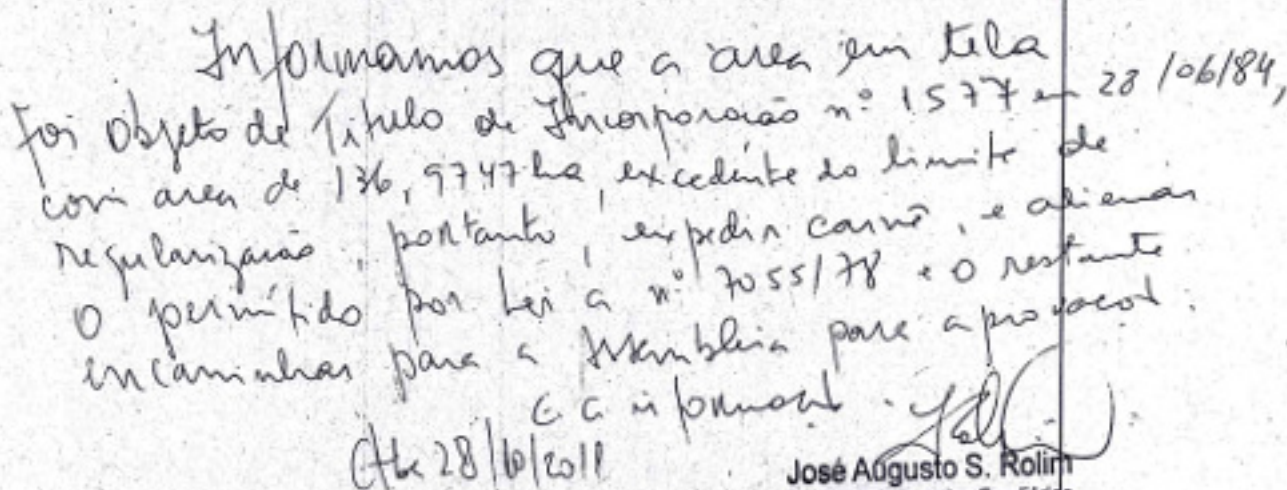 Informamos que a area em tela
foi objeto de Titulo de Incorporação nº 1577 em 28/06/84,
com area de 136,9747ha, excedente do limite de
regularização, portanto, expedir carnê, e alienar
o permitido por Lei a nº 7055/78 e o restante
encaminhar para a Assembleia para aprovação.
É a informação.
28/10/2011
José Augusto S. Rolim